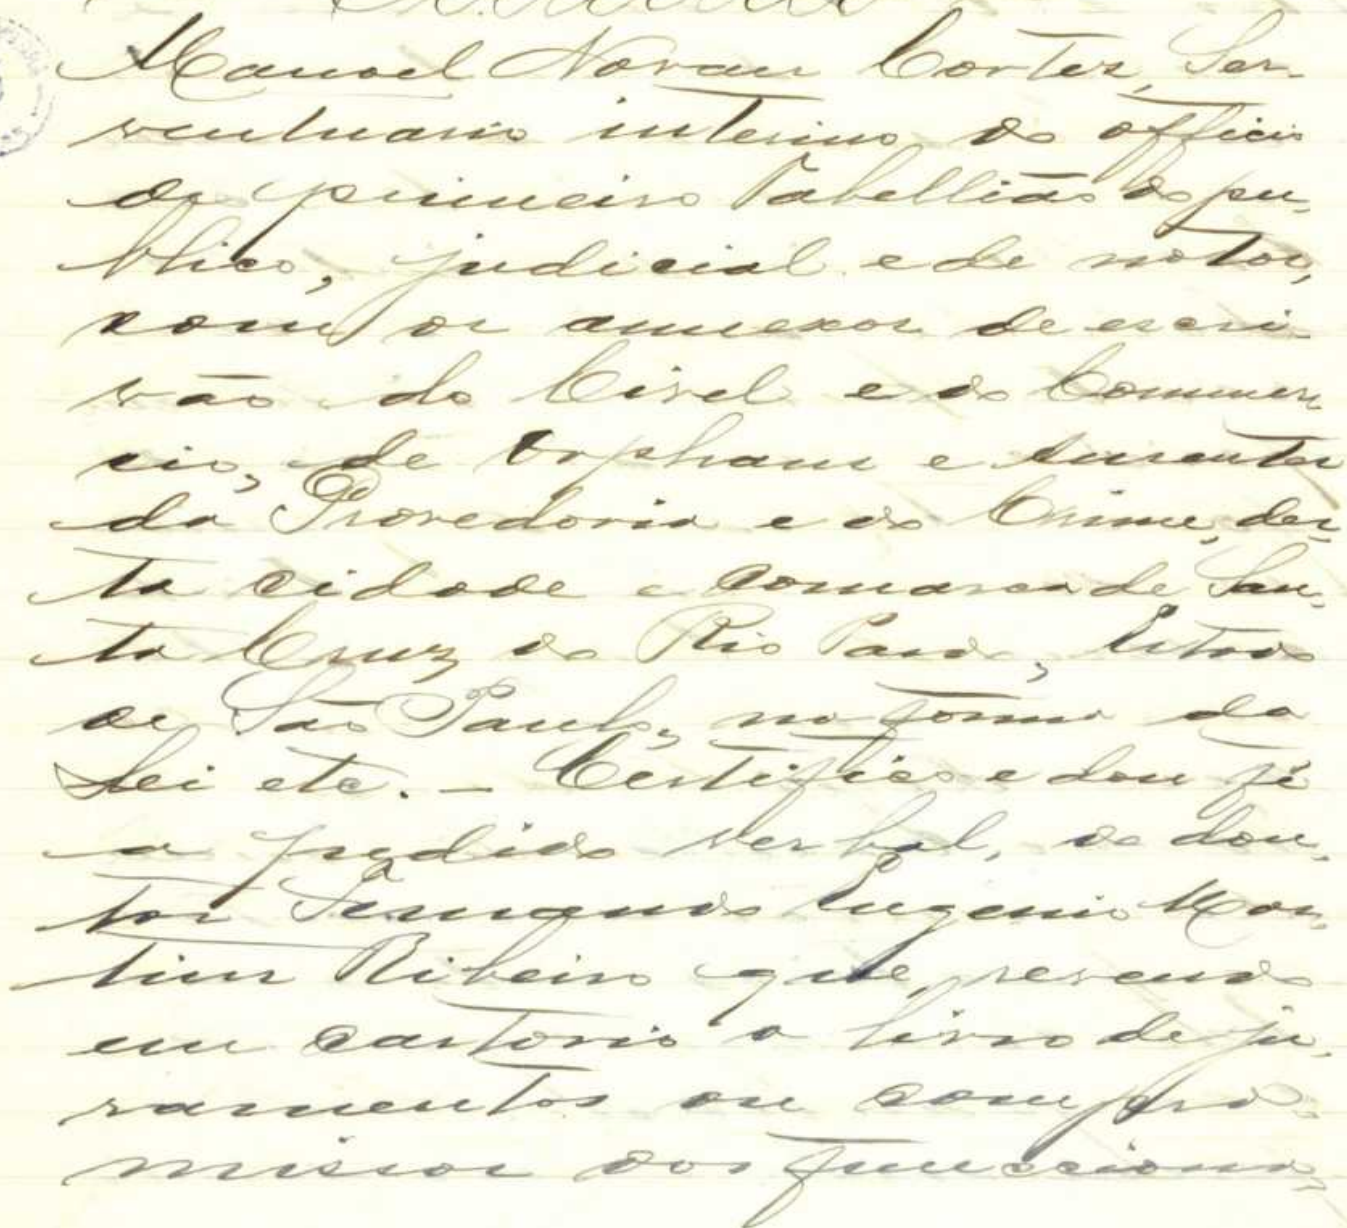 Manoel Novaes Cortez, Ser-
ventuario interino do officio
de primeiro Tabellião do pu-
blico, judicial e de notas,
com os annexos de escri-
vão do Civel e do Commer-
cio, de Orphams e Ausentes
da Provedoria e do Crime, des-
ta cidade e comarca de San-
ta Cruz do Rio Pardo, Estado
de São Paulo, na forma da
Lei etc. - Certifico e dou fé
a pedido verbal, do dou-
tor Fernando Eugenio Mar-
tins Ribeiro que, revendo
em cartorio o livro de ju-
ramentos ou compro-
missos dos funcciona-